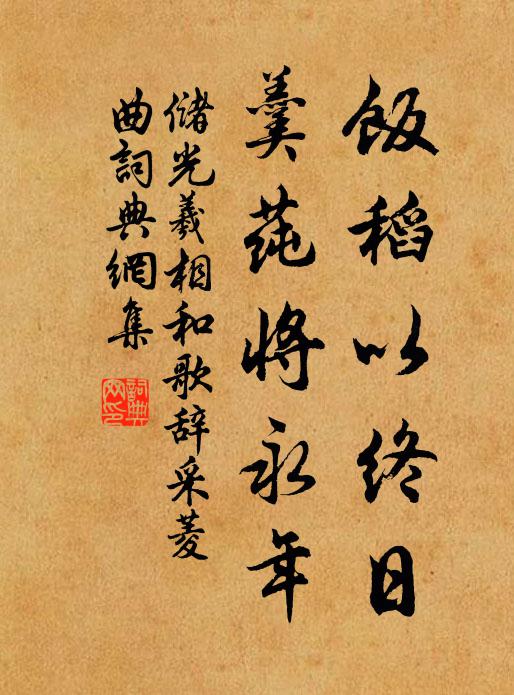 飯稻以終日
羹莼將永年
儲光羲相和歌辞采菱
曲詞典網集
詞典
网印